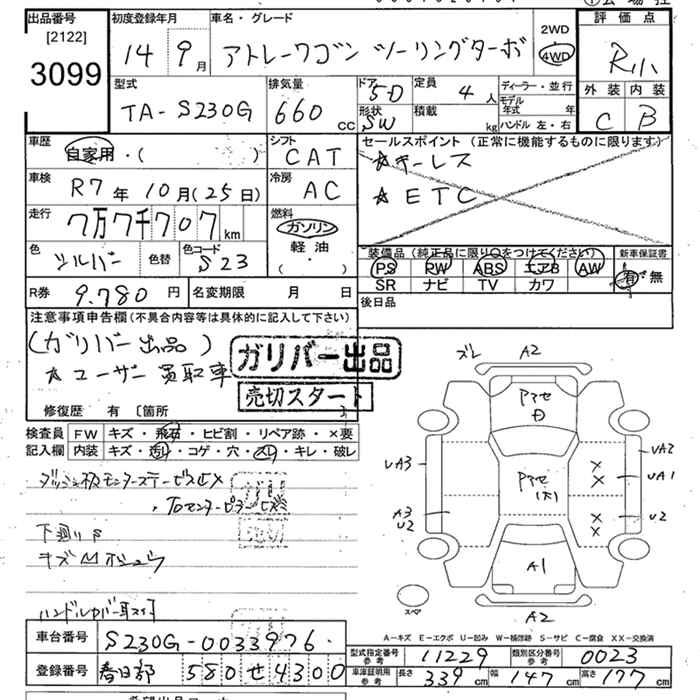 出品番号 初度登録年月 車名・グレード 2WD 評価点
[2122]
3099 14 9月 アトレーワゴン ツーリングターボ 4WD R小
型式 排気量 ドア 定員 ディーラー・並行 外装 内装
TA-S230G 660 cc 5D 4人 モデル年式 年 C B
形状 SW 積載 kg ハンドル 左・右
車歴 自家用・( ) シフト CAT セールスポイント(正常に機能するものに限ります)
☆キーレス
車検 R7年10月(25日) 冷房 AC ☆ETC
走行 7万7千707km 燃料 ガソリン
軽油
色 シルバー 色替 色コード S23 装備品(純正品に限り○をつけてください) 新車保証書
PS PW ABS エアB AW 有・無
SR ナビ TV カワ
R券 9.780円 名変期限 月 日 後日品
注意事項申告欄(不具合内容等は具体的に記入して下さい)
(ガリバー出品) ガリバー出品
☆ユーザー買取車 売切スタート
修復歴 有〔箇所
検査員 FW キズ・飛石・ヒビ割・リペア跡・×要
記入欄 内装 キズ・汚れ・コゲ・穴・スレ・キレ・破レ
ズレ A2
UA3 A3 U2
UA2 UA1 U2
A1
A2
スペア
下廻りサビ
ハンドルカバー
車台番号 S230G-0033976
A-キズ E-エクボ U-凹み W-補修跡 S-サビ C-腐食 XX-交換済
型式指定番号 参考 11229 類別区分番号 参考 0023
登録番号 春日部 580 せ 4300
車庫証明用 参考 長さ 339cm 幅 147cm 高さ 177cm